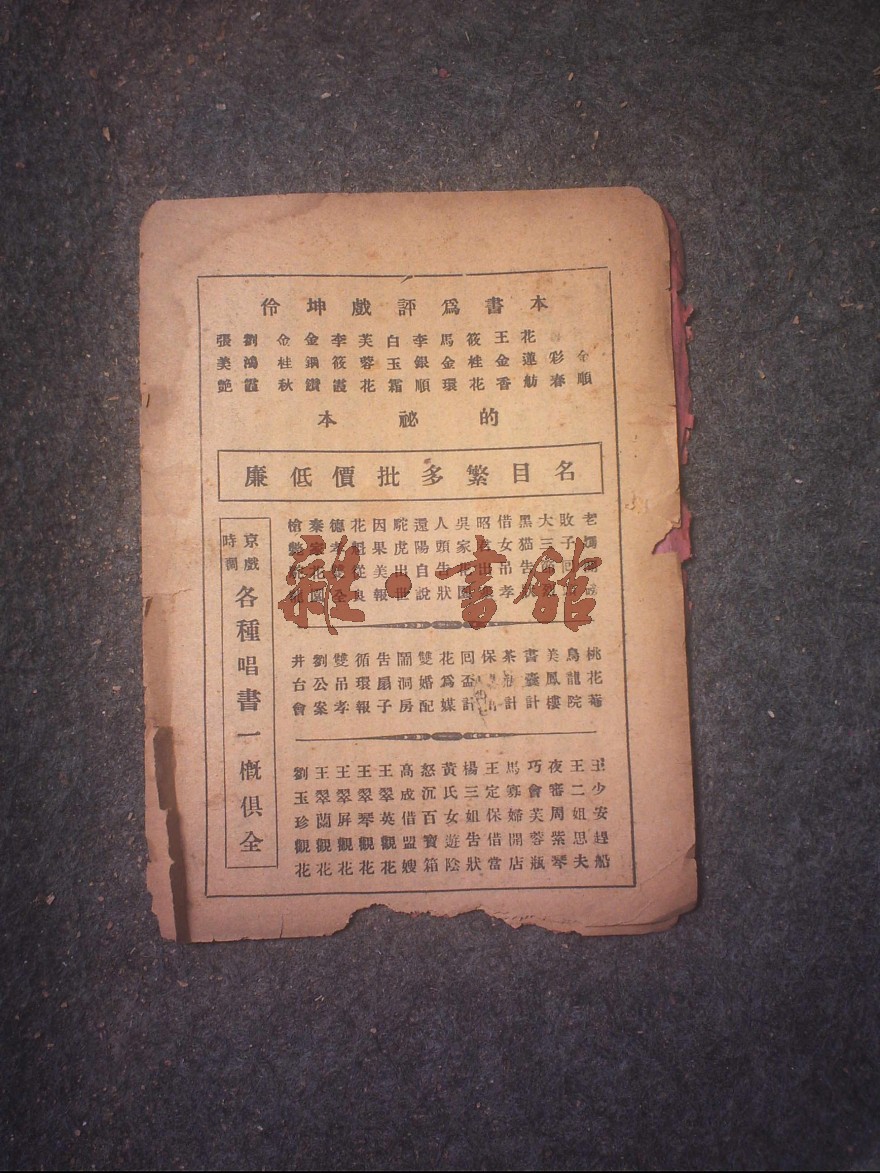 本書為評戲坤伶
金順
彩春
花蓮舫
王金香
筱桂花
馬金環
李銀順
白玉霜
芙蓉花
李筱霞
金鋼鑽
金桂秋
劉鴻霞
張美艷
的祕本
名目繁多批價低廉
老媽開嗙
敗子回頭
黑猫告狀
借女吊孝
昭君出塞
吳家花園
人頭告狀
還陽自說
駝虎出世
因果美報
花魁從良
德孝雙全
秦家花園
桃花菴
烏龍院
美鳳樓
書囊計
回盃計
花為媒
雙婚配
鬧洞房
告扇子
循環報
雙吊孝
劉公案
井台會
王少安趕船
王二姐思夫
夜審周紫琴
巧會芙蓉瓶
馬寡婦開店
王定保借當
楊三姐告狀
黃氏女遊陰
怒沉百寶箱
高成借盟嫂
王翠英觀花
王翠琴觀花
王翠屏觀花
王翠蘭觀花
劉玉珍觀花
京戲
時調
各種唱書一概俱全
雜·書館